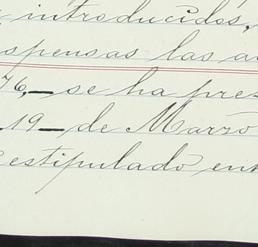 introducidos,
spensas las a
76,— se ha pre
19 — de Marzo
estipulado en